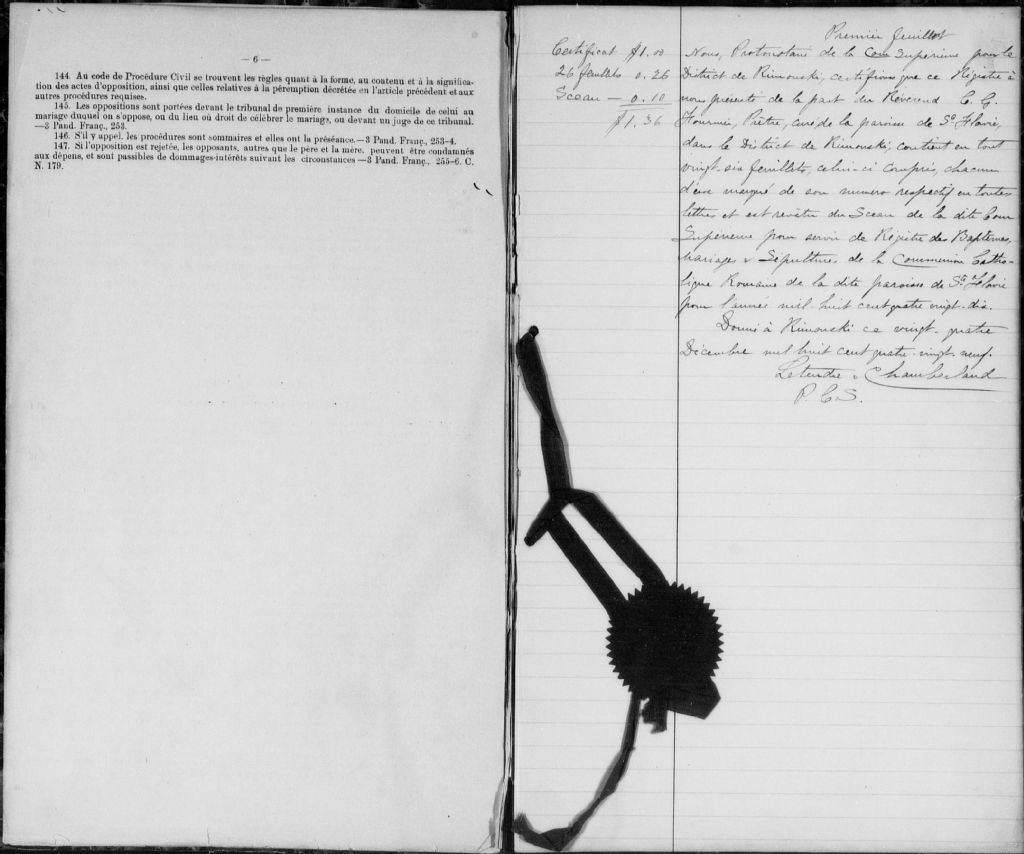 — 6 —
144. Au code de Procédure Civil se trouvent les règles quant à la forme, au contenu et à la significa-
tion des actes d'opposition, ainsi que celles relatives à la péremption décrétée en l'article précédent et aux
autres procédures requises.
145. Les oppositions sont portées devant le tribunal de première instance du domicile de celui au
mariage duquel on s'oppose, ou du lieu où droit de célébrer le mariage, ou devant un juge de ce tribunal.
—3 Pand. Franç., 253.
146. S'il y appel, les procédures sont sommaires et elles ont la préséance.—3 Pand. Franç., 253-4.
147. Si l'opposition est rejetée, les opposants, autres que le père et la mère, peuvent être condamnés
aux dépens, et sont passibles de dommages-intérêts suivant les circonstances —3 Pand. Franç., 255-6. C.
N. 179.
Premier feuillet
Certificat $1.00
26 feuillets 0.26
Sceau — 0.10
$1.36
Nous, Protonotaire de la Cour Supérieure pour le
District de Rimouski, certifions que ce Régistre à
nous présenté de la part du Révérend C. G.
Fournier, Prêtre, curé de la paroisse de Ste Flavie,
dans le District de Rimouski, contient en tout
vingt-six feuillets, celui-ci compris, chacun
d'eux marqué de son numero respectif en toutes
lettres et est revêtu du Sceau de la dite Cour
Supérieure pour servir de Régistre des Baptêmes,
Mariages & Sépultures de la Communion Catho-
lique Romaine de la dite paroisse de Ste Flavie
pour l'année mil huit cent quatre vingt-dix.
Donné à Rimouski ce vingt-quatre
Décembre mil huit cent quatre-vingt-neuf.
Letendre & Chamberland
P. C. S.